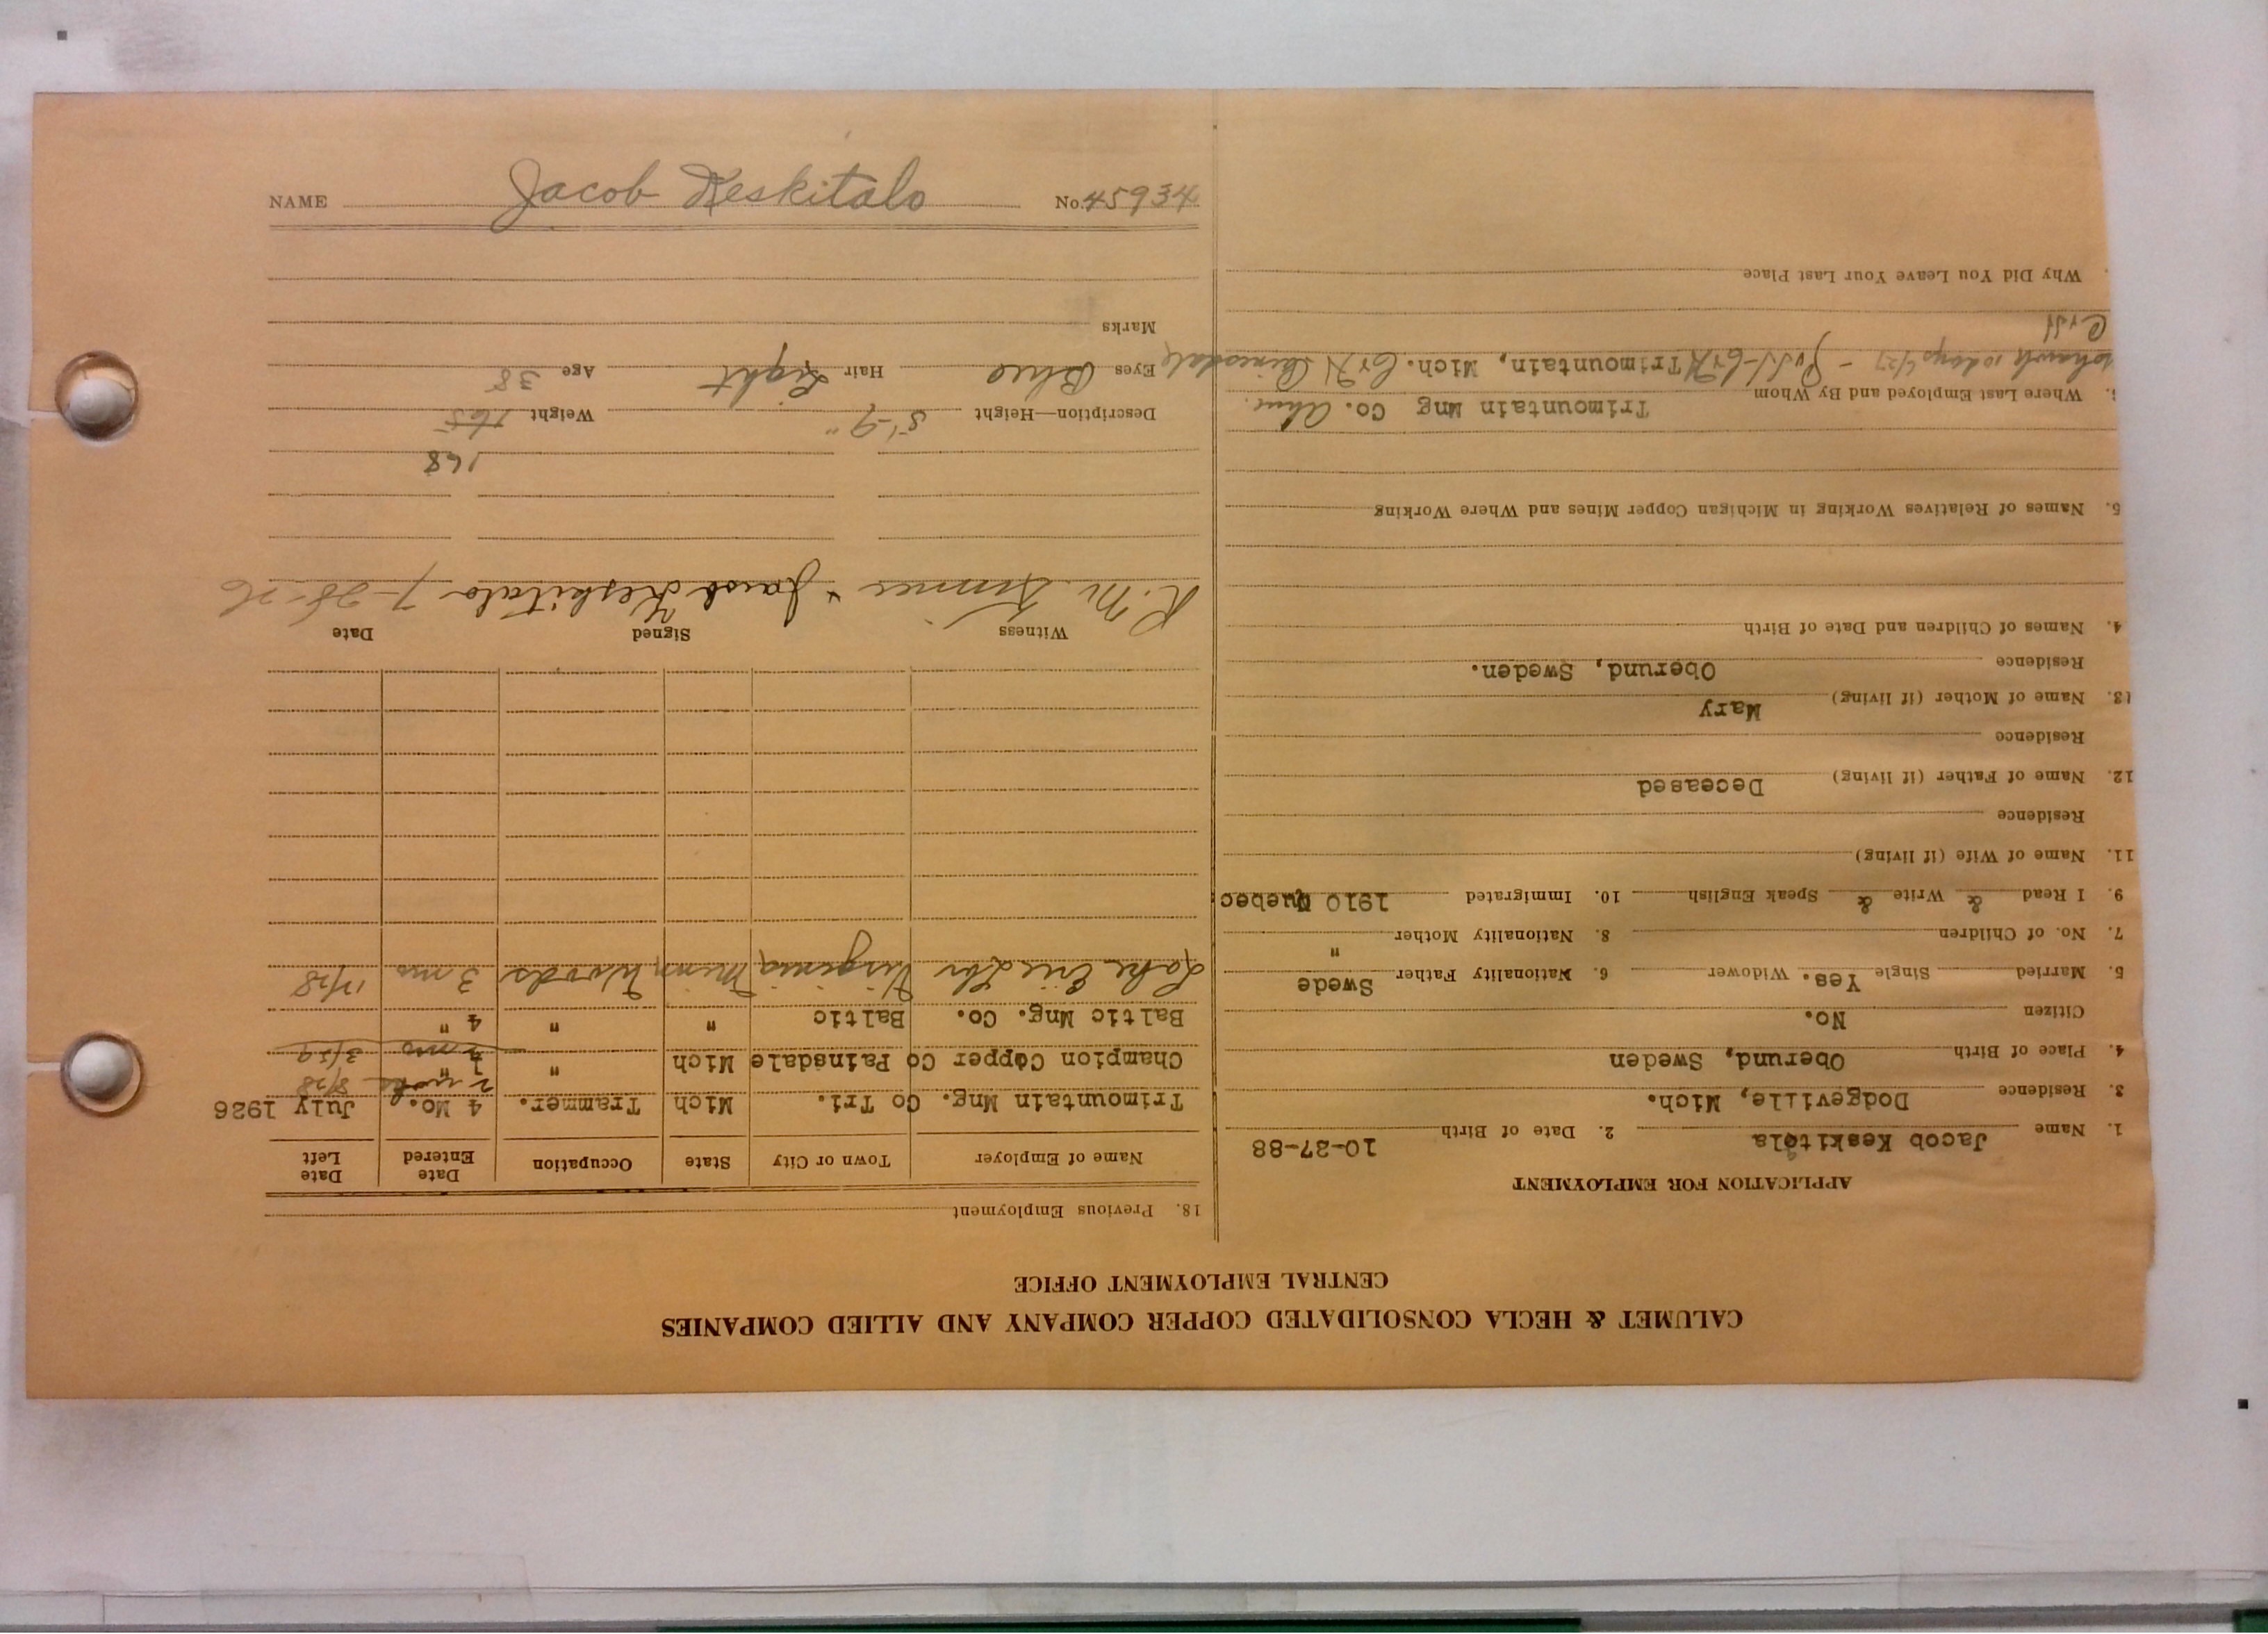 CALUMET & HECLA CONSOLIDATED COPPER COMPANY AND ALLIED COMPANIES
CENTRAL EMPLOYMENT OFFICE
APPLICATION FOR EMPLOYMENT
1. Name Jacob Keskitalo 2. Date of Birth 10-27-88
3. Residence Dodgeville, Mich.
4. Place of Birth Oberund, Sweden
Citizen No.
5. Married Single Yes. Widower 6. Nationality Father Swede
7. No. of Children 8. Nationality Mother "
9. I Read & Write & Speak English 10. Immigrated 1910 Quebec
11. Name of Wife (if living)
Residence
12. Name of Father (if living) Deceased
Residence
13. Name of Mother (if living) Mary
Residence Oberund, Sweden.
4. Names of Children and Date of Birth
5. Names of Relatives Working in Michigan Copper Mines and Where Working
Where Last Employed and By Whom Trimountain Mng Co.
10 days 4/27 - C&H Trimountain, Mich. C&H Painesdale
C&H
Why Did You Leave Your Last Place
18. Previous Employment
Name of Employer Town or City State Occupation Date Entered Date Left
Trimountain Mng. Co Tri. Mich Trammer. 4 Mo. July 1926
2 weeks 8/28
Champion Copper Co Painsdale Mich " 7 "
4 mos 3/29
Baltic Mng. Co. Baltic " " 4 "
Lake Erie Lbr Virginia Minn Woods 3 mo 12/28
Witness Signed Date
R. M. x Jacob Keskitalo 7-28-26
168
Description—Height 5'-9" Weight 165
Eyes Blue Hair Light Age 38
Marks
NAME Jacob Keskitalo No. 45934